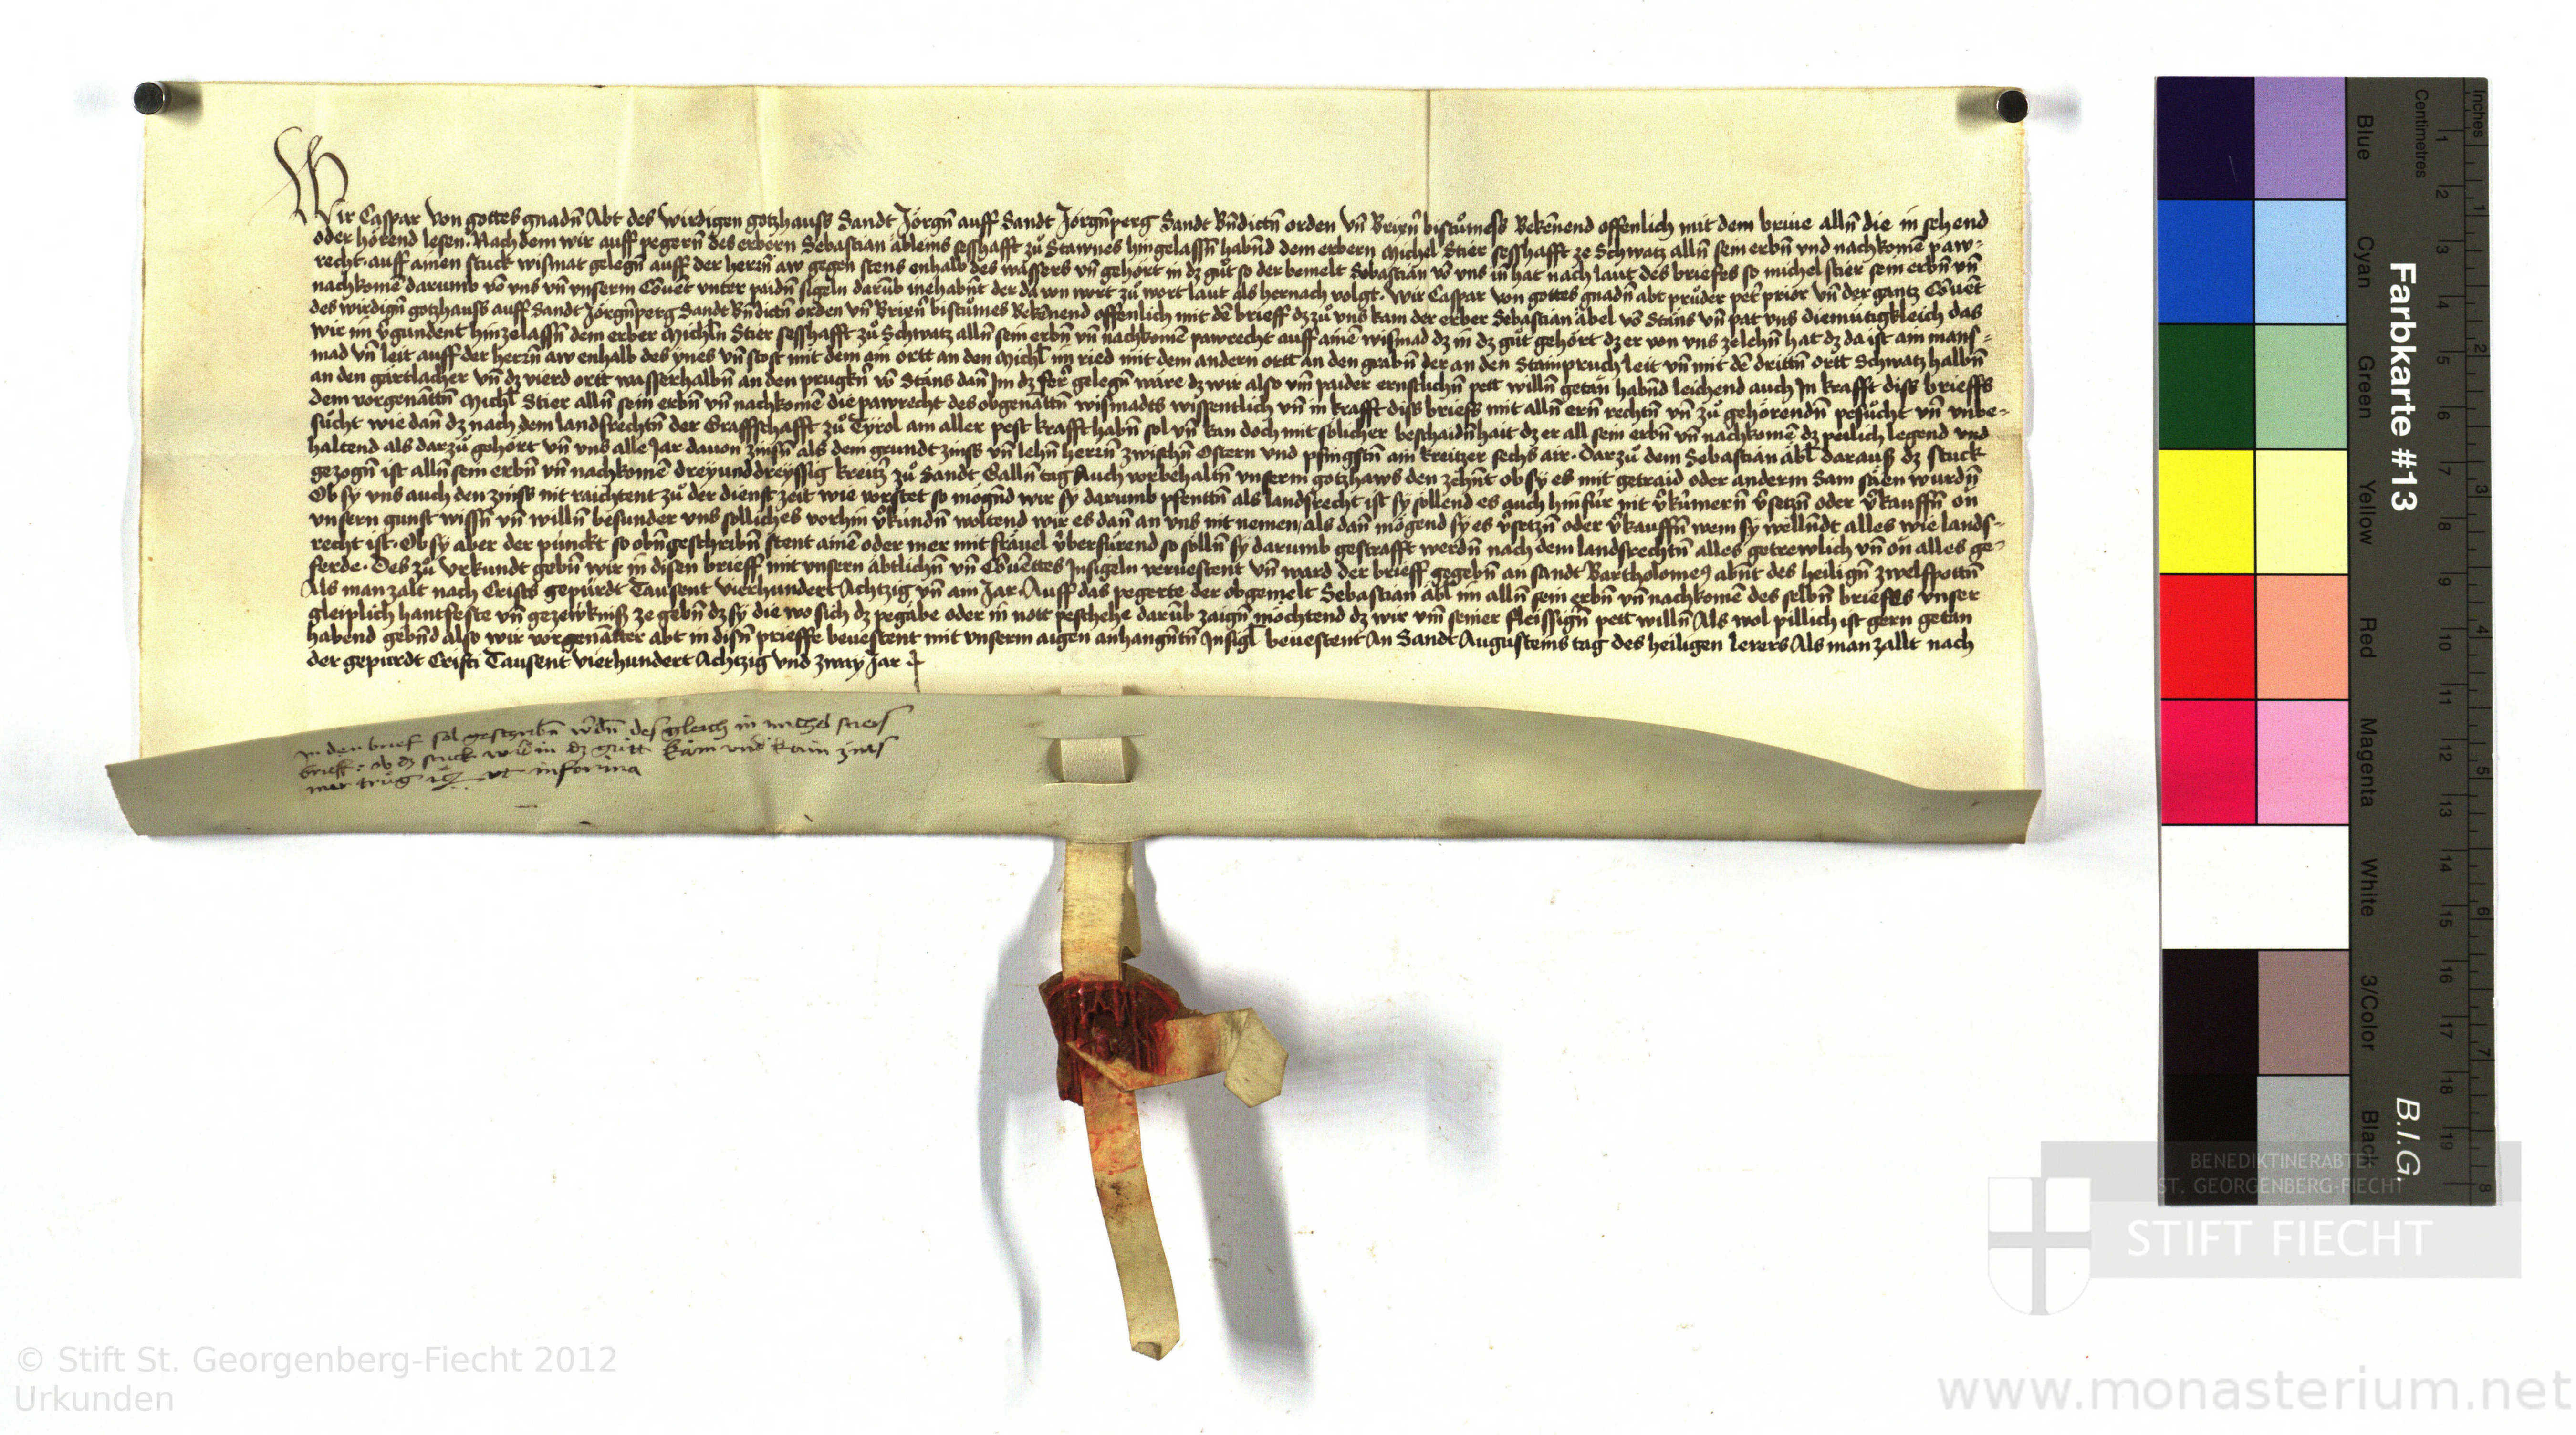 Wir Caspar von gottes gnadn̄ Abt des wirdigen gotzhauss Sandt Jörgn̄ auff Sandt Jörgn̄perg Sandt Bn̄dictn̄ orden vn̄ Brixn̄ bistumess Bekēnend offenlich mit dem brieue alln̄ die in sehend
oder hörend lesen. Nach dem wir auff pegern̄ des erbern Sebastian äbleins sesshafft zů Stawnes hingelassn̄ habn̄d dem erbern Michel Stier sesshafft ze Schwatz alln̄ sein erbn̄ vnd nachkomē paw-
recht. auff ainen stuck wismat gelegn̄ auff der herrn̄ aw gegen stens enhalb des wassers vn̄ gehört in dz gůt so der bemelt Sebastian vō vns in̄ hat nach laut des briefes so michel stier sein erbn̄ vn̄
nachkomē darumb vō vns vn̄ vnserm Cōuēt vnter paidn̄ sigeln darūb inehabn̄t der da von wort zů wort laut als hernach volgt. Wir Caspar von gottes gnadn̄ abt průder pet̄ prior vn̄ der gantz Cōuēt
des wirdign̄ gotzhauss auff Sandt Jörgn̄perg Sandt Bn̄dictn̄ orden vn̄ Brixn̄ bistumes Bekēnend offenlich mit dē brieff dz zů vns kam der erber Sebastian äbel vō Stäns vn̄ pat vns diemütigkleich das
wir im v̄gundent hinzelassn̄ dem erber Micheln Stier sesshafft zů Schwatz alln̄ sein erbn̄ vn̄ nachkomē pawrecht auff ainē wismad dz in dz gůt gehört dz er von vns zelehn̄ hat dz da ist ain mans-
mad vn̄ leit auff der herrn̄ aw enhalb des ynes vn̄ stost mit dem ain ortt an den Michl̄ im ried mit dem andern ortt an den grabn̄ der an den Stainpruch leit vn̄ mit dē drittn̄ ortt Schwatz halbn̄
an den gärtlacher vn̄ dz vierd ortt wasserhalbn̄ an den prugkn̄ vō Stäns dan̄ im dz gelegn̄ wäre dz wir also vm̄ paider ernstlichn̄ pett willn̄ getan habn̄d leichend auch In krafft diss brieffs
dem vorgenāttn̄ Michl̄ Stier alln̄ sein erbn̄ vn̄ nachkomē die pawrecht des obgenāttn̄ wismadts wissentlich vn̄ in krafft diss briefs mit alln̄ ern̄ rechtn̄ vn̄ zů gehörendn̄ pesůcht vn̄ vnbe-
sůcht wie dan̄ dz nach dem landsrechtn̄ der Graffschafft zů Tyrol am aller pest krafft habn̄ sol vn̄ kan doch mit solicher beschaidn̄hait dz er all sein erbn̄ vn̄ nachkomē dz peilich legend vnd
haltend als darzů gehört vn̄ vns alle Jar dauon zinsn̄ als dem grundt zinss vn̄ lehn̄ herrn̄ zwischn̄ Ostern vnd pfingstn̄ ain kreitzer sechs air. Darzů dem Sebastian äbl̄ darauß dz stuck
gezogn̄ ist alln̄ sein erbn̄ vn̄ nachkomē dreyunddreyssig kreitz̄ zů Sandt Galln̄ tag Auch vorbehaltn̄ vnserm gotzhaws den zehn̄t ob sy es mit getraid oder anderm Sam säen wurdn̄
Ob sy vns auch den zinss nit raichtent zů der dienst zeit wie vorstet so mögn̄d wir sy darumb pfenttn̄ als landsrecht ist sy sollend es auch hinfür nit v̄kümern̄ v̄setzn̄ oder v̄kauffn̄ on
vnsern gunst wissn̄ vn̄ willn̄ besunder vns solliches vorhin v̄kündn̄ woltend wir es dan̄ an vns nit nemen als dan̄ mögend sy es v̄setzn̄ oder v̄kauffn̄ wem sy welln̄dt alles wie lands-
recht ist. Ob sy aber der punckt so obn̄geschribn̄ stent ainē oder mer mit fräuel v̄berfürend so solln̄ sy darumb gestrafft werdn̄ nach dem landsrechtn̄ alles getrewlich vn̄ on alles ge-
ferde. Des zů vrkundt gebn̄ wir in disen brieff mit vnsern äbtlichn̄ vn̄ Cōuēttes Insigeln veruestent vn̄ ward der brieff gegebn̄ an sandt Bartholomeꝰ abn̄t des heilign̄ zwelfpottn̄
Als man zalt nach Crists gepürdt Tausent vierhundert Achtzig vn̄ ain Jar. Auff das pegerte der obgemelt Sebastian äbl̄ im alln̄ sein erbn̄ vn̄ nachkomē des selbn̄ briefes vnser
gleiplich hantfeste vn̄ gezewkniß ze gebn̄ dz sy die wo sich dz pegäbe oder in nott peschehe darūb zaign̄ möchtend dz wir vm̄ seiner fleissign̄ pett willn̄ Als wol pillich ist gern getan
habend gebn̄d also wir vorgenātter abt in disn̄ prieffe beuestent mit vnserm aigen anhangn̄tn̄ Insigl beuestent An Sandt Augusteins tag des heiligen lerers Als man zallt nach
der gepurdt Cristi Tausent vierhundert Achtzig vnd zway Jar
in den brief sol geschribn̄ w̄dn̄ desgleich in michel stiers
brieff: ob dz stuck wid̄ in dz gutt käm vnd kain zins
mer trůg ut in forma
Farbkarte #13
B.I.G.
Blue Cyan Green Yellow Red Magenta White 3/Color Black
Centimetres 1 2 3 4 5 6 7 8 9 10 11 12 13 14 15 16 17 18 19
Inches 1 2 3 4 5 6 7 8
BENEDIKTINERABTEI
ST. GEORGENBERG-FIECHT
STIFT FIECHT
© Stift St. Georgenberg-Fiecht 2012
Urkunden
www.monasterium.net